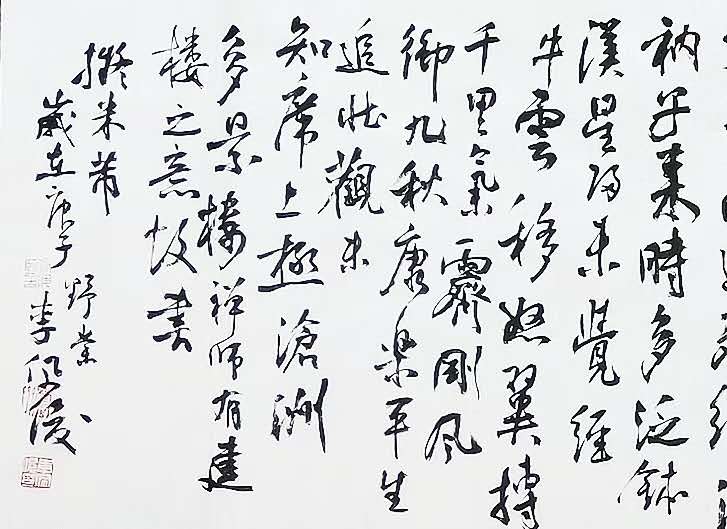 衲子來時多泛鉢
漢星歸未覺經
牛雲移怒翼摶
千里氣霽剛風
御九秋康樂平生
追壯觀未
知席上極滄洲
多景樓禪師有建
樓之意故書
擬米芾
歲在庚子
李